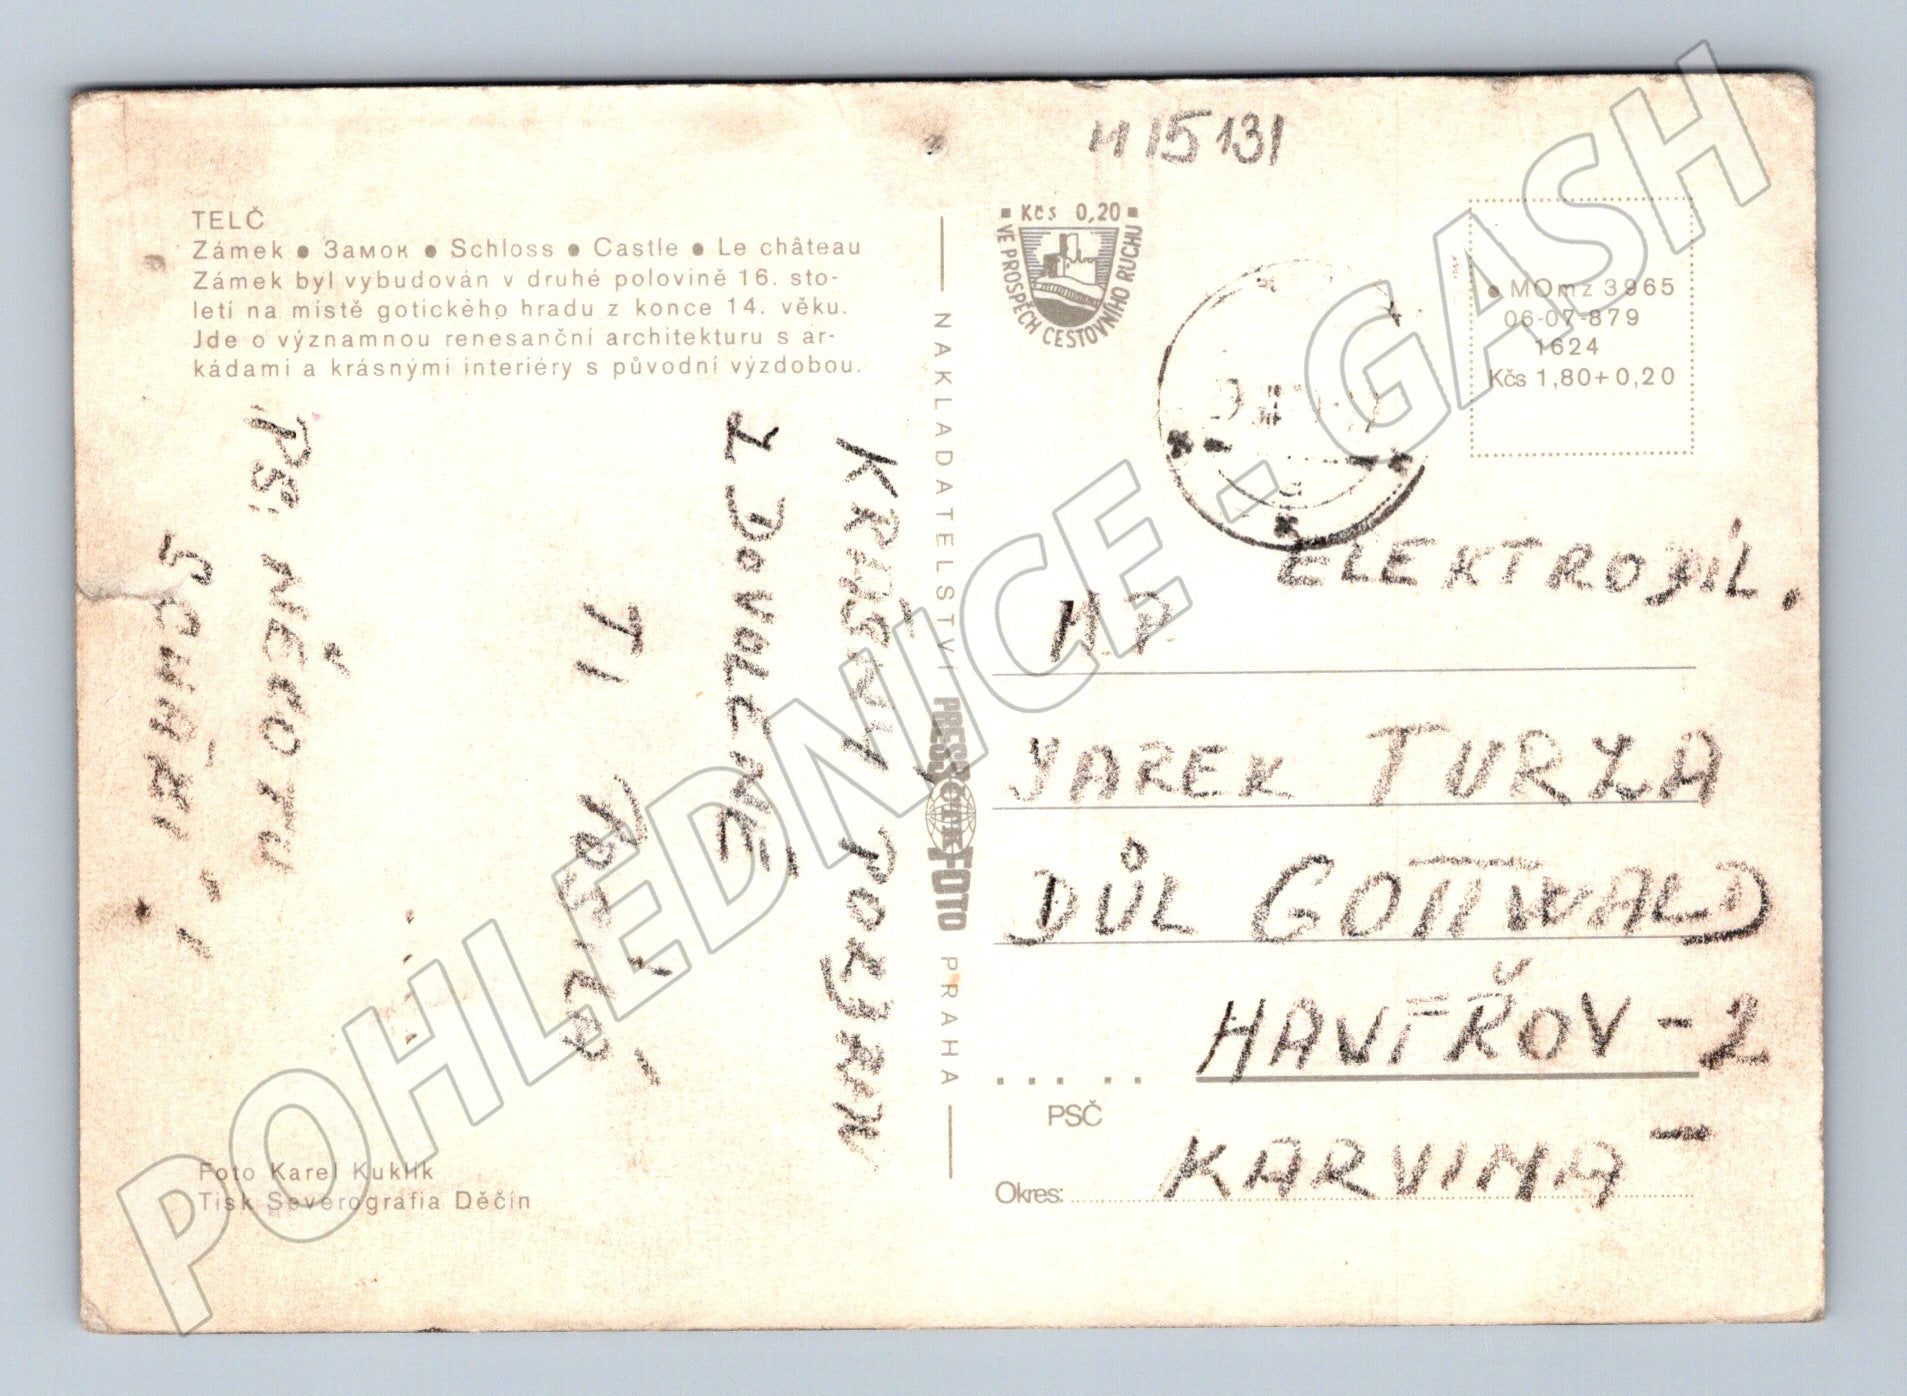 M 15131
TELČ
Zámek ● Замок ● Schloss ● Castle ● Le château
Zámek byl vybudován v druhé polovině 16. sto-
letí na místě gotického hradu z konce 14. věku.
Jde o významnou renesanční architekturu s ar-
kádami a krásnými interiéry s původní výzdobou.
Kčs 0,20
VE PROSPĚCH CESTOVNÍHO RUCHU
● MOmz 3965
06-07-879
1624
Kčs 1,80+0,20
KRÁSNÝ POZDRAV
Z DOVOLENÉ
TI POSÍLÁ
PS: NĚKOTU
SCHÁZÍ
NAKLADATELSTVÍ PRESSFOTO PRAHA
ELEKTRODÍL.
JAREK TURZA
DŮL GOTTWALD
HAVÍŘOV-2
PSČ
Okres: KARVINA
Foto Karel Kuklík
Tisk Severografia Děčín
POHLEDNICE - GASH